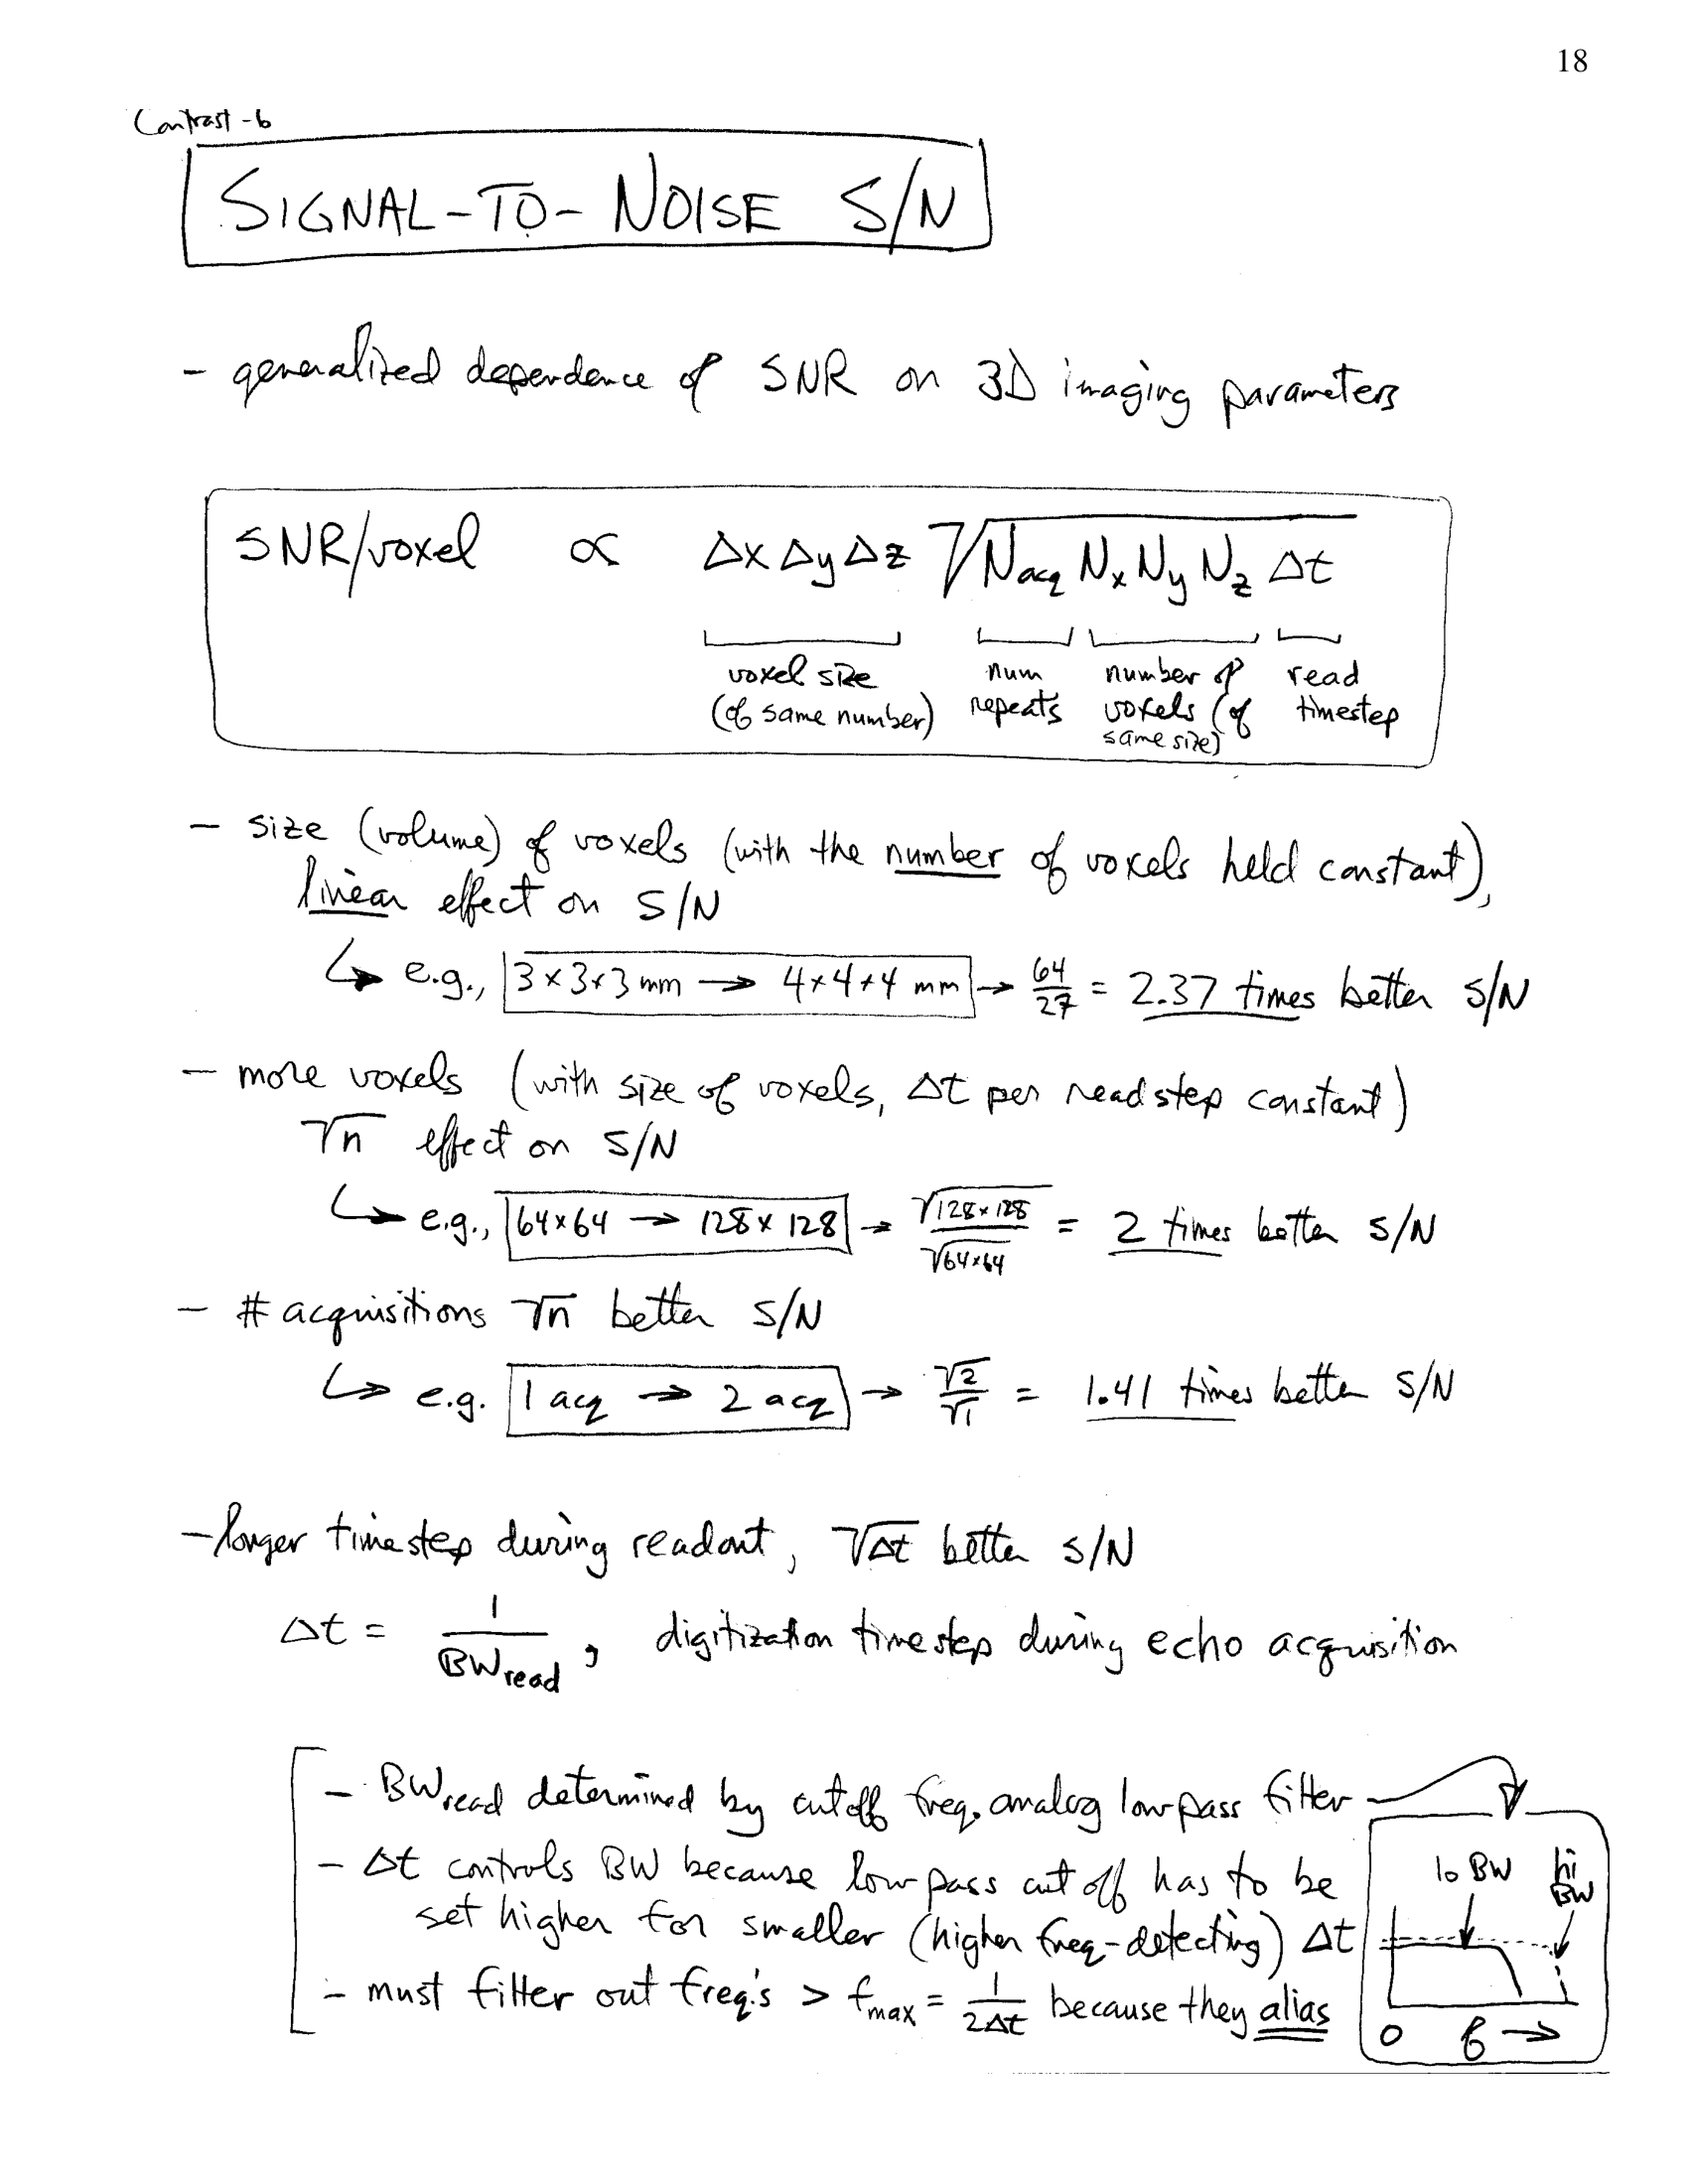 18
Contrast-6
SIGNAL-TO-NOISE S/N
- generalized dependence of SNR on 3D imaging parameters
SNR/voxel ∝ Δx Δy Δz √(N_acq N_x N_y N_z Δt)
voxel size num number of read
(of same number) repeats voxels (of timestep
same size)
- size (volume) of voxels (with the number of voxels held constant),
linear effect on S/N
↳ e.g., 3×3×3 mm → 4×4×4 mm → 64/27 = 2.37 times better S/N
- more voxels (with size of voxels, Δt per readstep constant)
√n effect on S/N
↳ e.g., 64×64 → 128×128 → √128×128 / √64×64 = 2 times better S/N
- # acquisitions √n better S/N
↳ e.g. 1 acq → 2 acq → √2/√1 = 1.41 times better S/N
- longer timestep during readout, √Δt better S/N
Δt = 1/BW_read , digitization timestep during echo acquisition
- BW_read determined by cutoff freq. analog low pass filter
- Δt controls BW because low pass cut off has to be
set higher for smaller (higher freq-detecting) Δt
- must filter out freq's > f_max = 1/2Δt because they alias
lo BW hi BW
0 f →